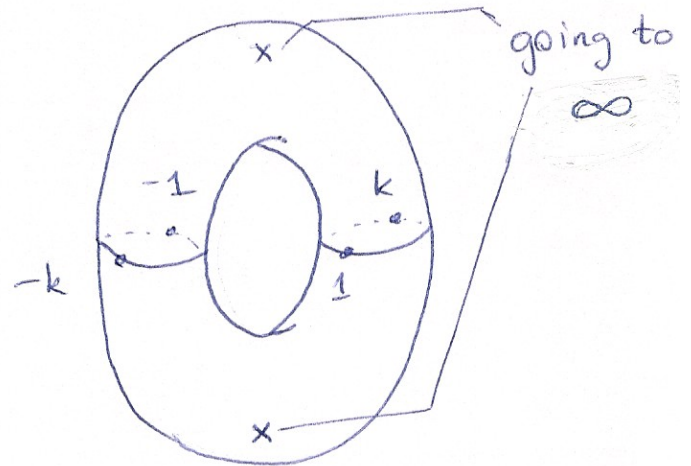 x
going to
∞
-1
k
-k
1
x